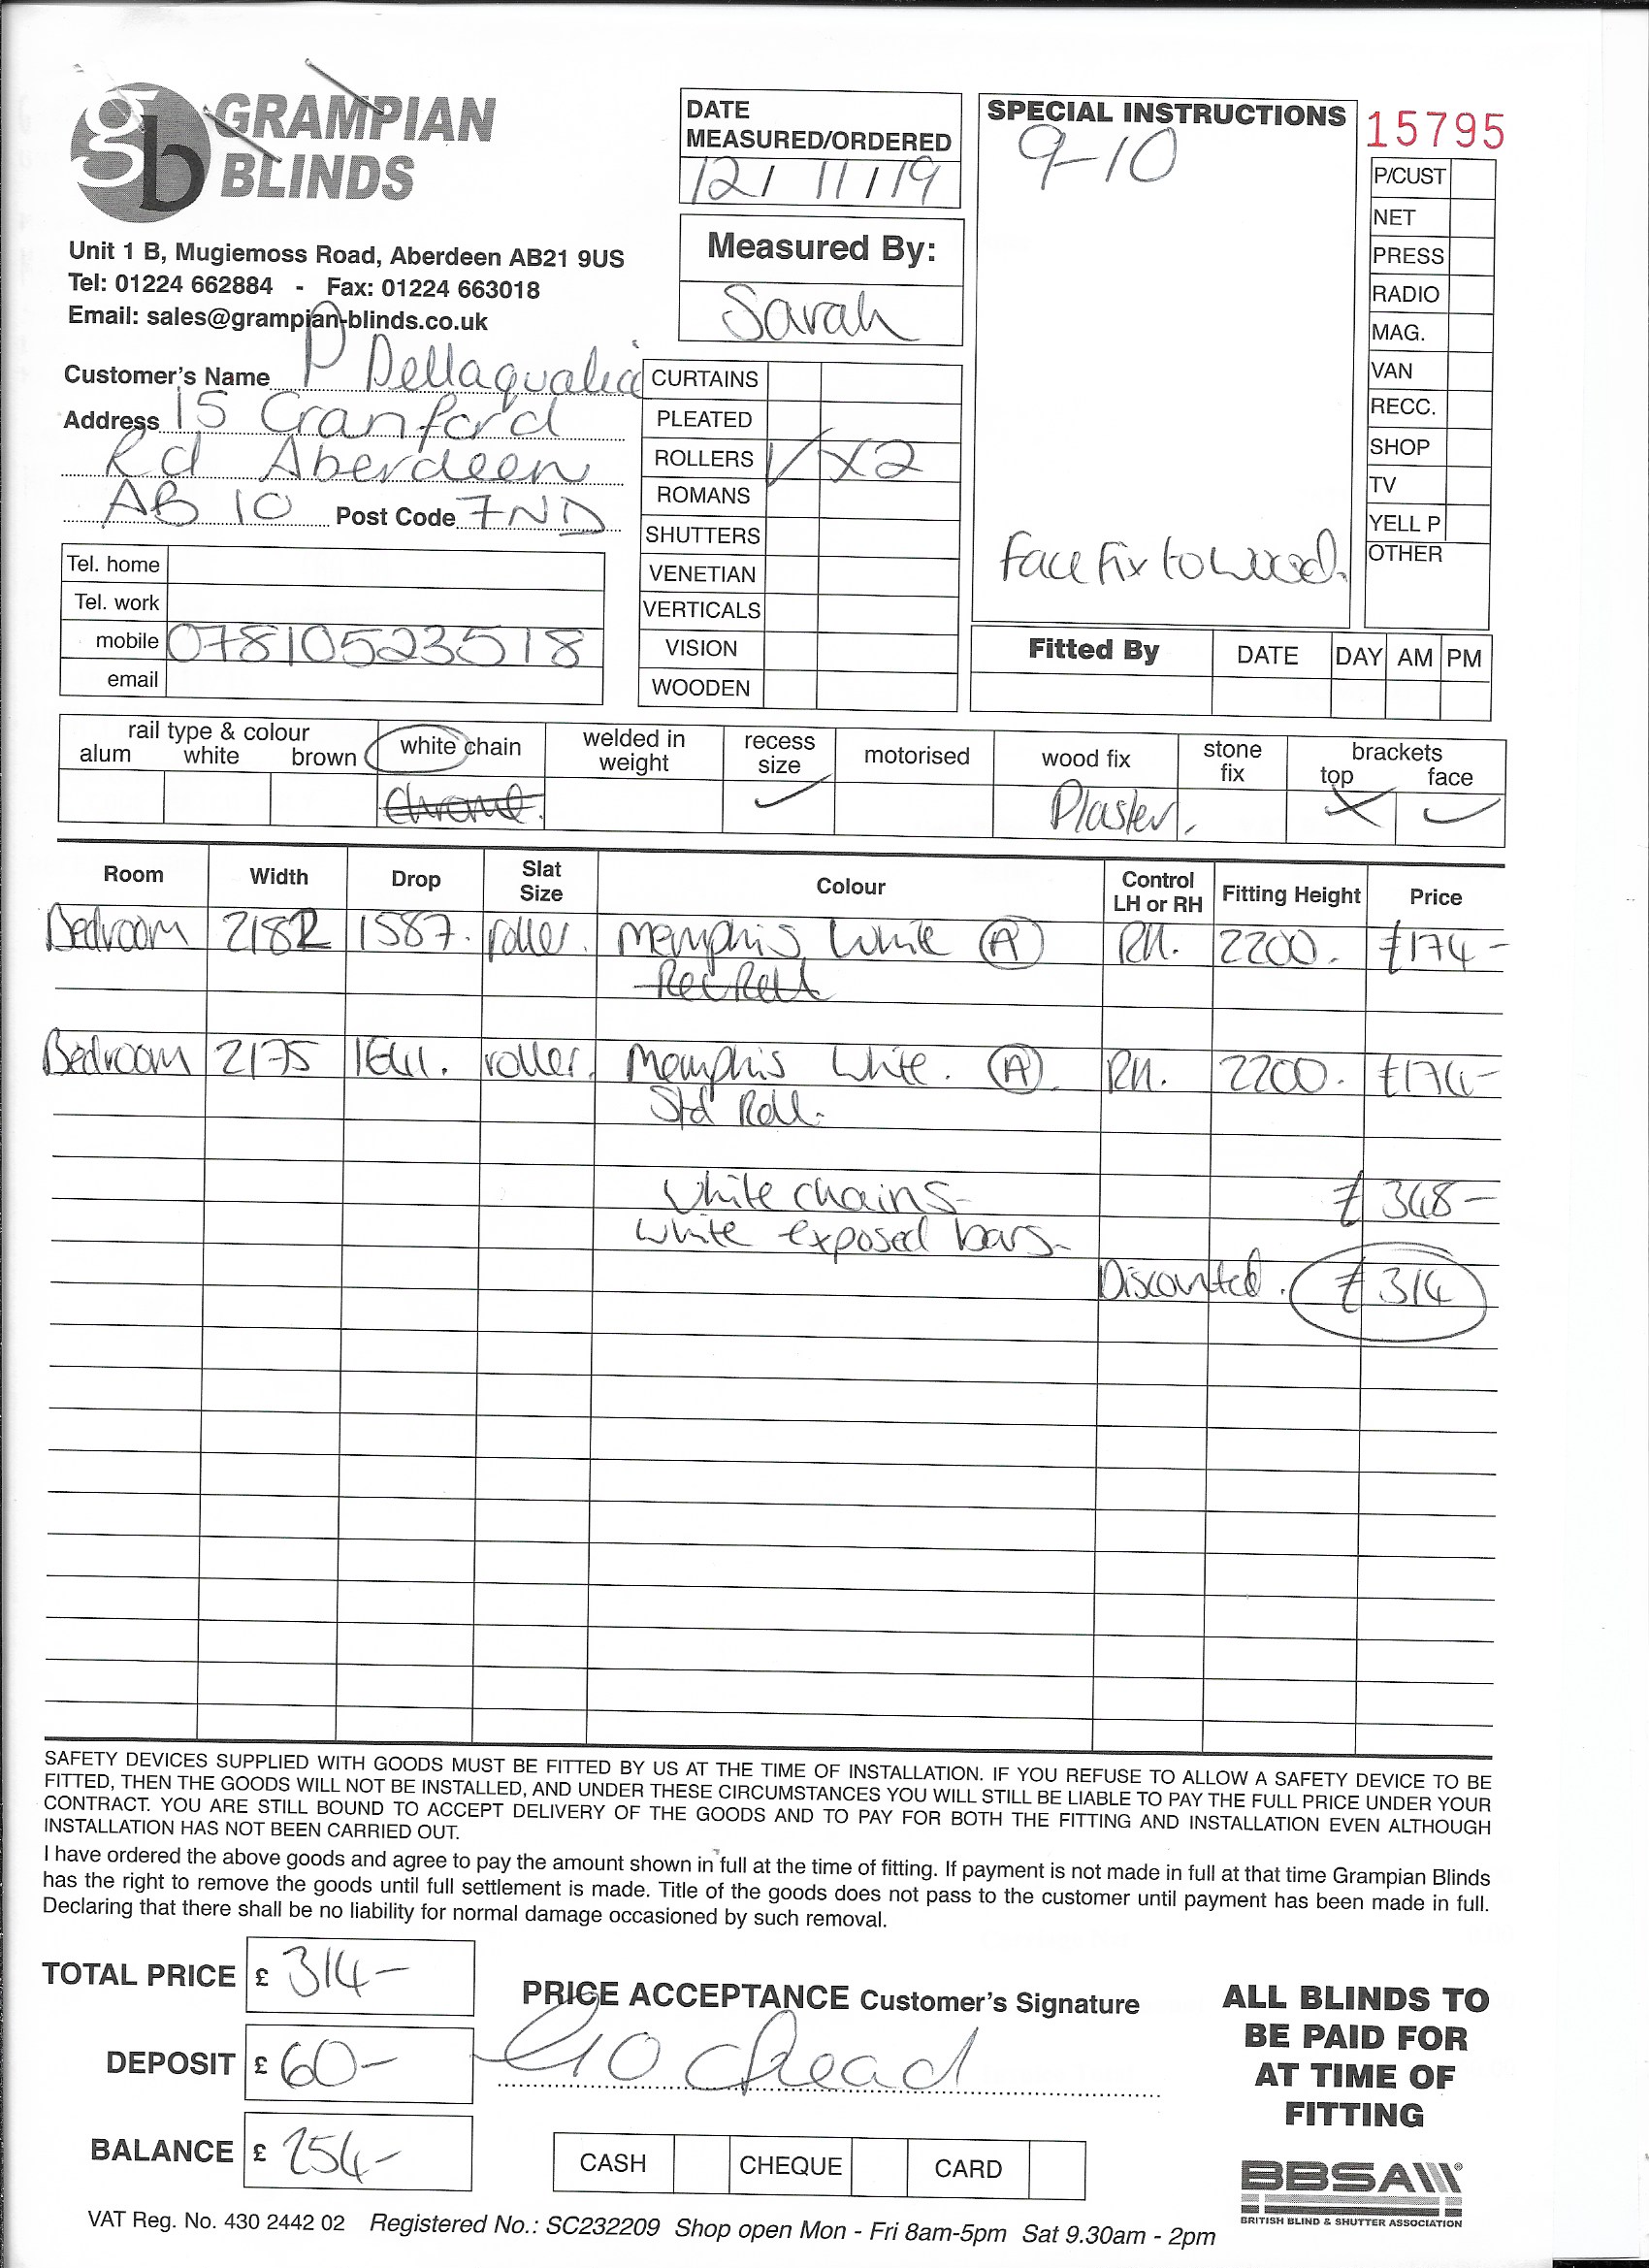 GRAMPIAN
BLINDS
Unit 1 B, Mugiemoss Road, Aberdeen AB21 9US
Tel: 01224 662884 - Fax: 01224 663018
Email: sales@grampian-blinds.co.uk
Customer's Name P Dellaqualia
Address 15 Cranford
Rd Aberdeen
AB 10 Post Code 7ND
Tel. home
Tel. work
mobile 07810523518
email
DATE
MEASURED/ORDERED
12/11/19
Measured By:
Sarah
CURTAINS
PLEATED
ROLLERS ✓ x2
ROMANS
SHUTTERS
VENETIAN
VERTICALS
VISION
WOODEN
SPECIAL INSTRUCTIONS
9-10
Face fix to wood.
15795
P/CUST
NET
PRESS
RADIO
MAG.
VAN
RECC.
SHOP
TV
YELL P
OTHER
Fitted By DATE DAY AM PM
rail type & colour
alum white brown
white chain
Chrome.
welded in
weight
recess
size
✓
motorised
wood fix
Plaster.
stone
fix
brackets
top face
X ✓
Room Width Drop Slat Size Colour Control LH or RH Fitting Height Price
Bedroom 2182 1587. roller. Memphis White (A) RH. 2200. £174-
Bedroom 2175 1641. roller. Memphis White. (A). RH. 2200. £174-
Std Roll.
White chains- £348-
White exposed bars-
Discounted. £314
SAFETY DEVICES SUPPLIED WITH GOODS MUST BE FITTED BY US AT THE TIME OF INSTALLATION. IF YOU REFUSE TO ALLOW A SAFETY DEVICE TO BE
FITTED, THEN THE GOODS WILL NOT BE INSTALLED, AND UNDER THESE CIRCUMSTANCES YOU WILL STILL BE LIABLE TO PAY THE FULL PRICE UNDER YOUR
CONTRACT. YOU ARE STILL BOUND TO ACCEPT DELIVERY OF THE GOODS AND TO PAY FOR BOTH THE FITTING AND INSTALLATION EVEN ALTHOUGH
INSTALLATION HAS NOT BEEN CARRIED OUT.
I have ordered the above goods and agree to pay the amount shown in full at the time of fitting. If payment is not made in full at that time Grampian Blinds
has the right to remove the goods until full settlement is made. Title of the goods does not pass to the customer until payment has been made in full.
Declaring that there shall be no liability for normal damage occasioned by such removal.
TOTAL PRICE £ 314-
DEPOSIT £ 60-
BALANCE £ 254-
PRICE ACCEPTANCE Customer's Signature
Go ahead
CASH CHEQUE CARD
ALL BLINDS TO
BE PAID FOR
AT TIME OF
FITTING
BBSA
BRITISH BLIND & SHUTTER ASSOCIATION
VAT Reg. No. 430 2442 02 Registered No.: SC232209 Shop open Mon - Fri 8am-5pm Sat 9.30am - 2pm